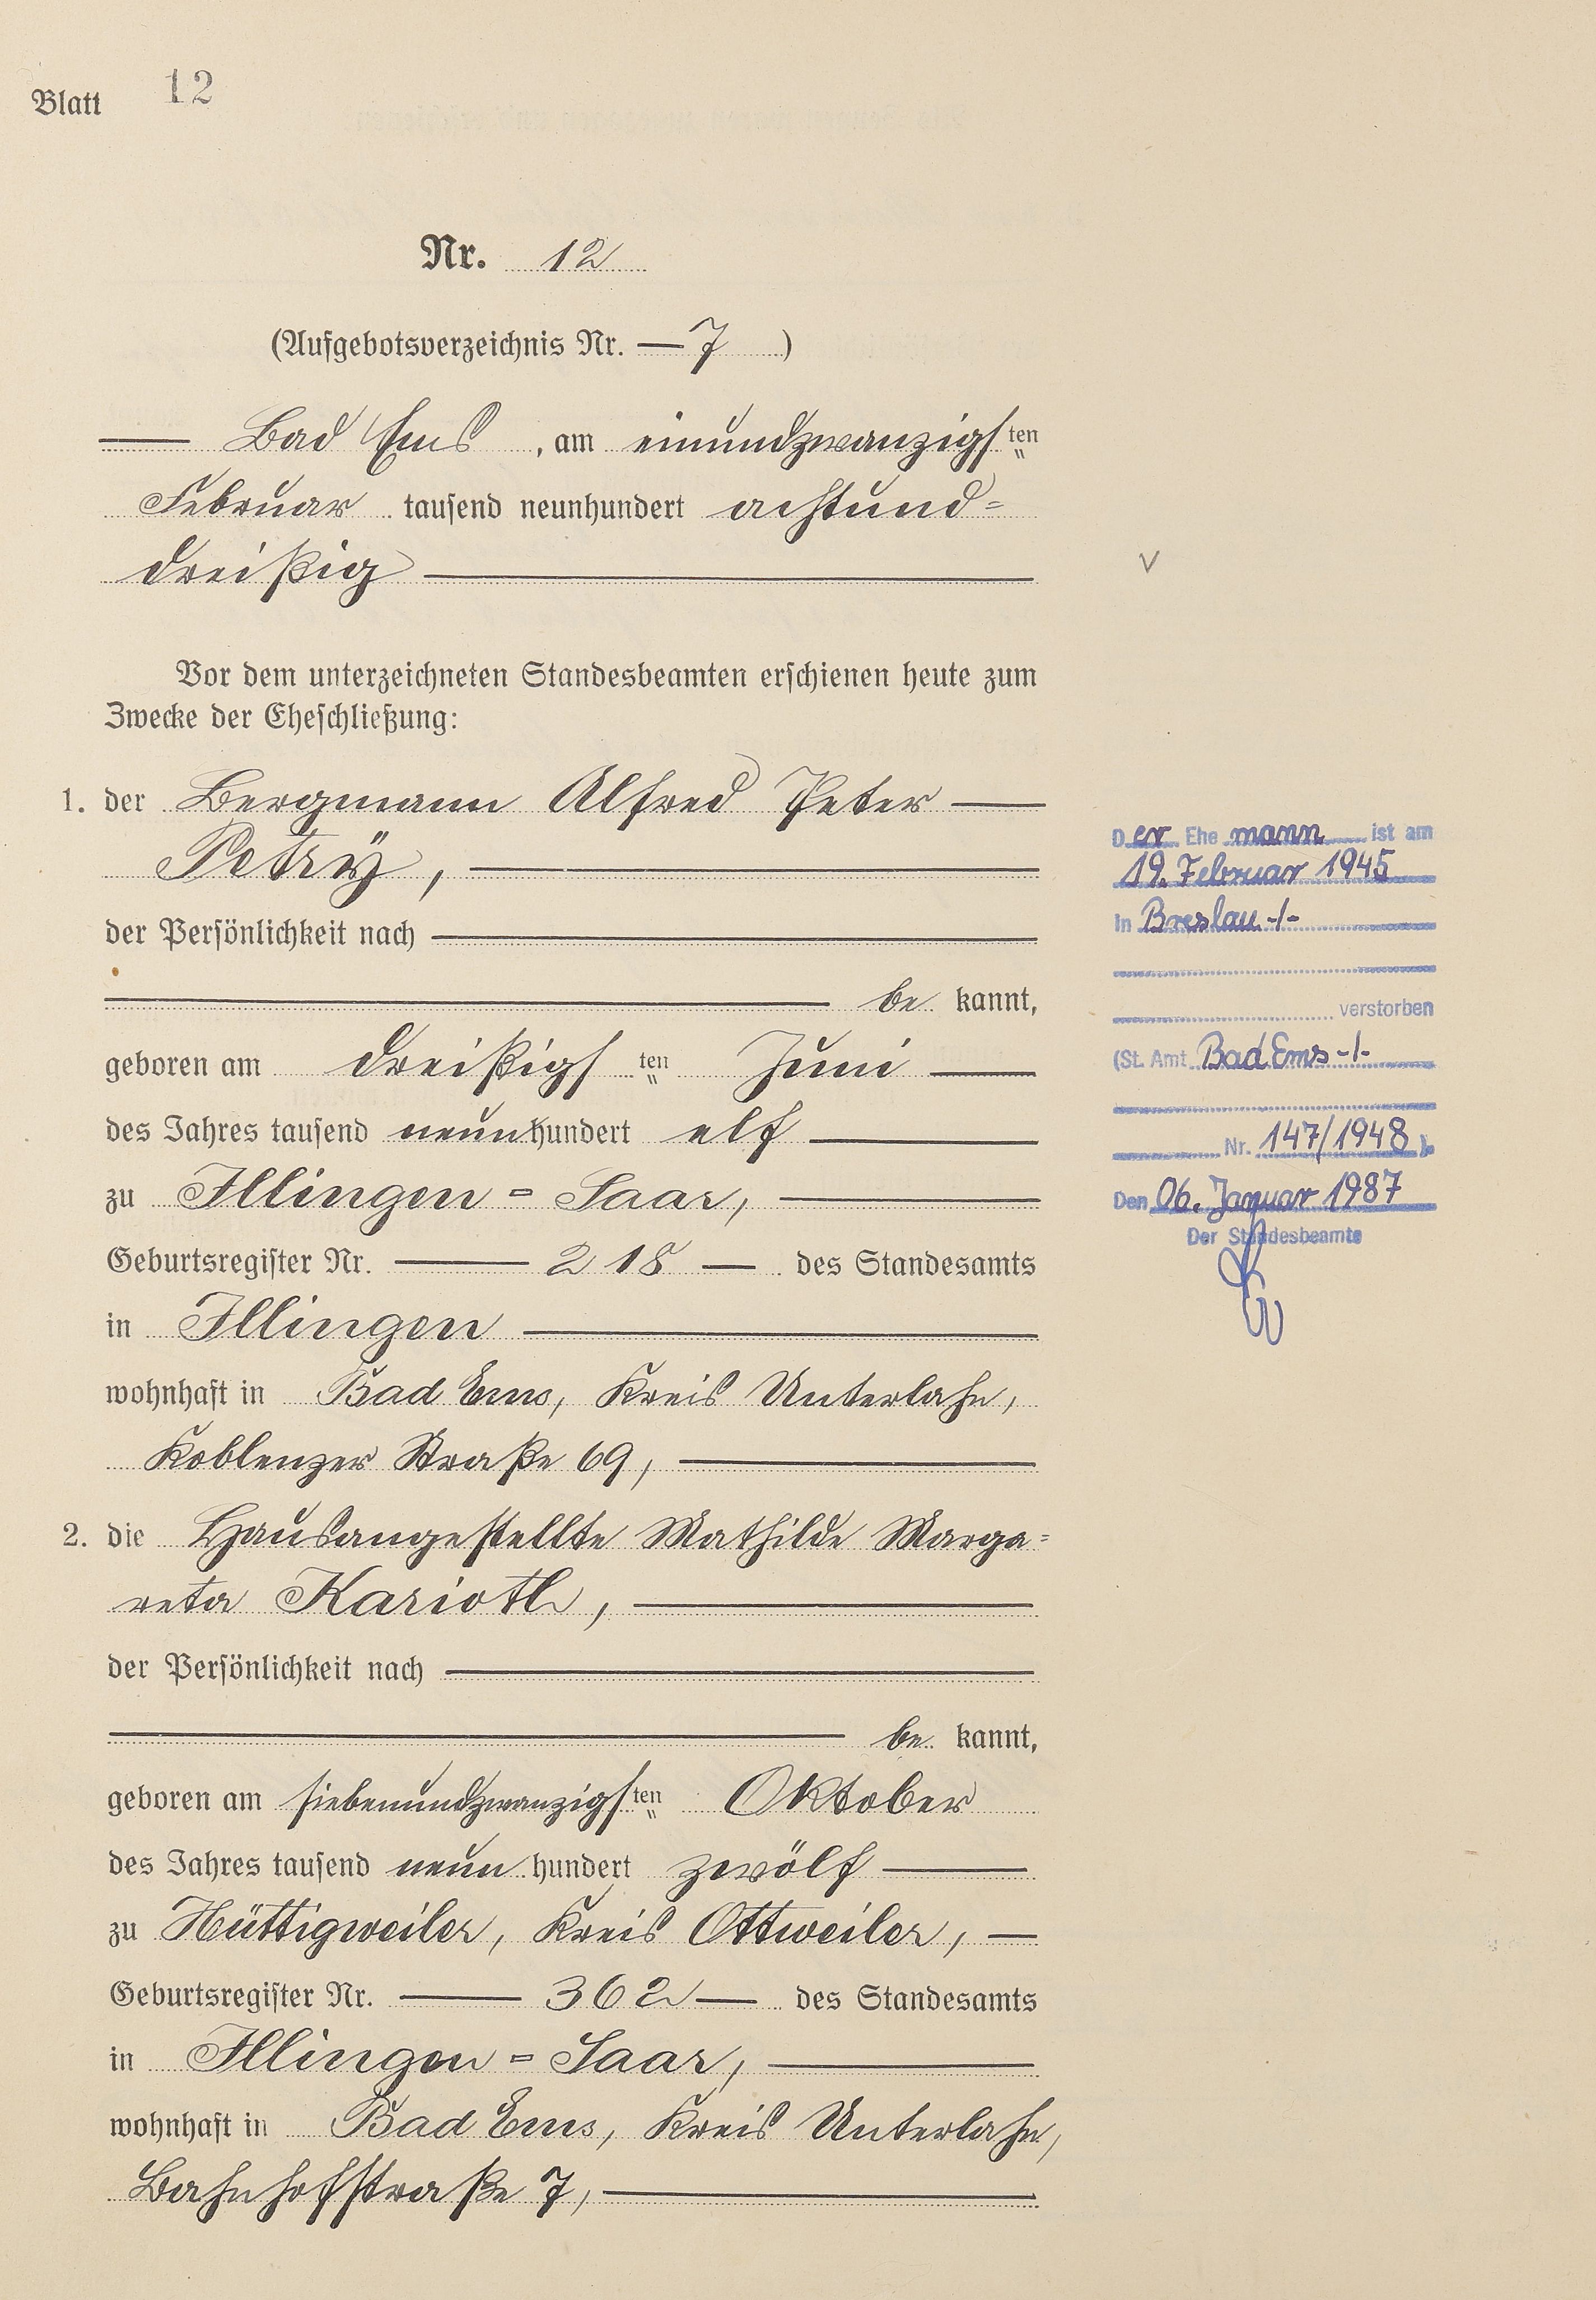 Blatt 12
Nr. 12
(Aufgebotsverzeichnis Nr. — 7 )
— Bad Ems , am einundzwanzigsten
Februar tausend neunhundert achtund=
dreißig —
Vor dem unterzeichneten Standesbeamten erschienen heute zum
Zwecke der Eheschließung:
1. der Bergmann Alfred Peter —
Petry, —
der Persönlichkeit nach —
— be kannt,
geboren am dreißigsten Juni —
des Jahres tausend neunhundert elf —
zu Illingen = Saar, —
Geburtsregister Nr. — 218 — des Standesamts
in Illingen —
wohnhaft in Bad Ems, Kreis Unterlahn,
Koblenzer Straße 69, —
2. die Hausangestellte Mathilde Marga=
reta Karioth, —
der Persönlichkeit nach —
— be kannt,
geboren am siebenundzwanzigsten Oktober
des Jahres tausend neun hundert zwölf —
zu Hüttigweiler, Kreis Ottweiler, —
Geburtsregister Nr. — 362 — des Standesamts
in Illingen = Saar, —
wohnhaft in Bad Ems, Kreis Unterlahn,
Bahnhofstraße 7, —
V
Der Ehemann ist am
19. Februar 1945
in Breslau -/-
verstorben
(St. Amt Bad Ems -/-
Nr. 147/1948 ).
Den 06. Januar 1987
Der Standesbeamte